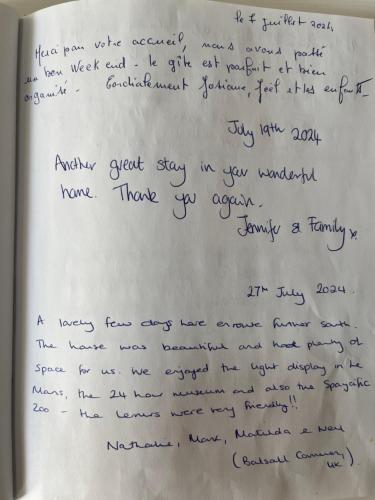 le 7 juillet 2024
Merci pour votre accueil, nous avons passé
un bon week end - le gîte est parfait et bien
organisé - Cordialement Josiane, Joël et les enfants.
July 19th 2024
Another great stay in your wonderful
home. Thank you again.
Jennifer & Family x
27th July 2024.
A lovely few days here enroute further south.
The house was beautiful and had plenty of
space for us. We enjoyed the light display in Le
Mans, the 24 hour museum and also the Spaycific
Zoo - the lemurs were very friendly!!
Nathalie, Mark, Matilda & Ned
(Balsall Common,
UK).